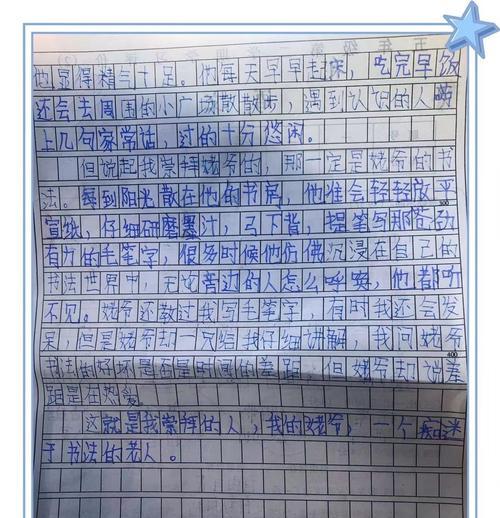 他显得精气十足。他每天早早起床，吃完早饭
还会去周围的小广场散散步，遇到认识的人
上几句家常话，过的十分悠闲。
但说起我崇拜姥爷的，那一定是姥爷的书
法。每到阳光散在他的书房，他准会轻轻放平
宣纸，仔细研磨墨汁，弓下背，提笔写那苍劲
300
有力的毛笔字，很多时候他仿佛沉浸在自己的
书法世界中，无论旁边的人怎么呼唤，他都听
不见。姥爷还教过我写毛笔字，有时我还会发
呆，但是姥爷却一次给我仔细讲解，我问姥爷
400
书法的好坏是否是时间的差距，但姥爷却说差
距是在热爱。
这就是我崇拜的人，我的姥爷，一个痴迷
于书法的老人。